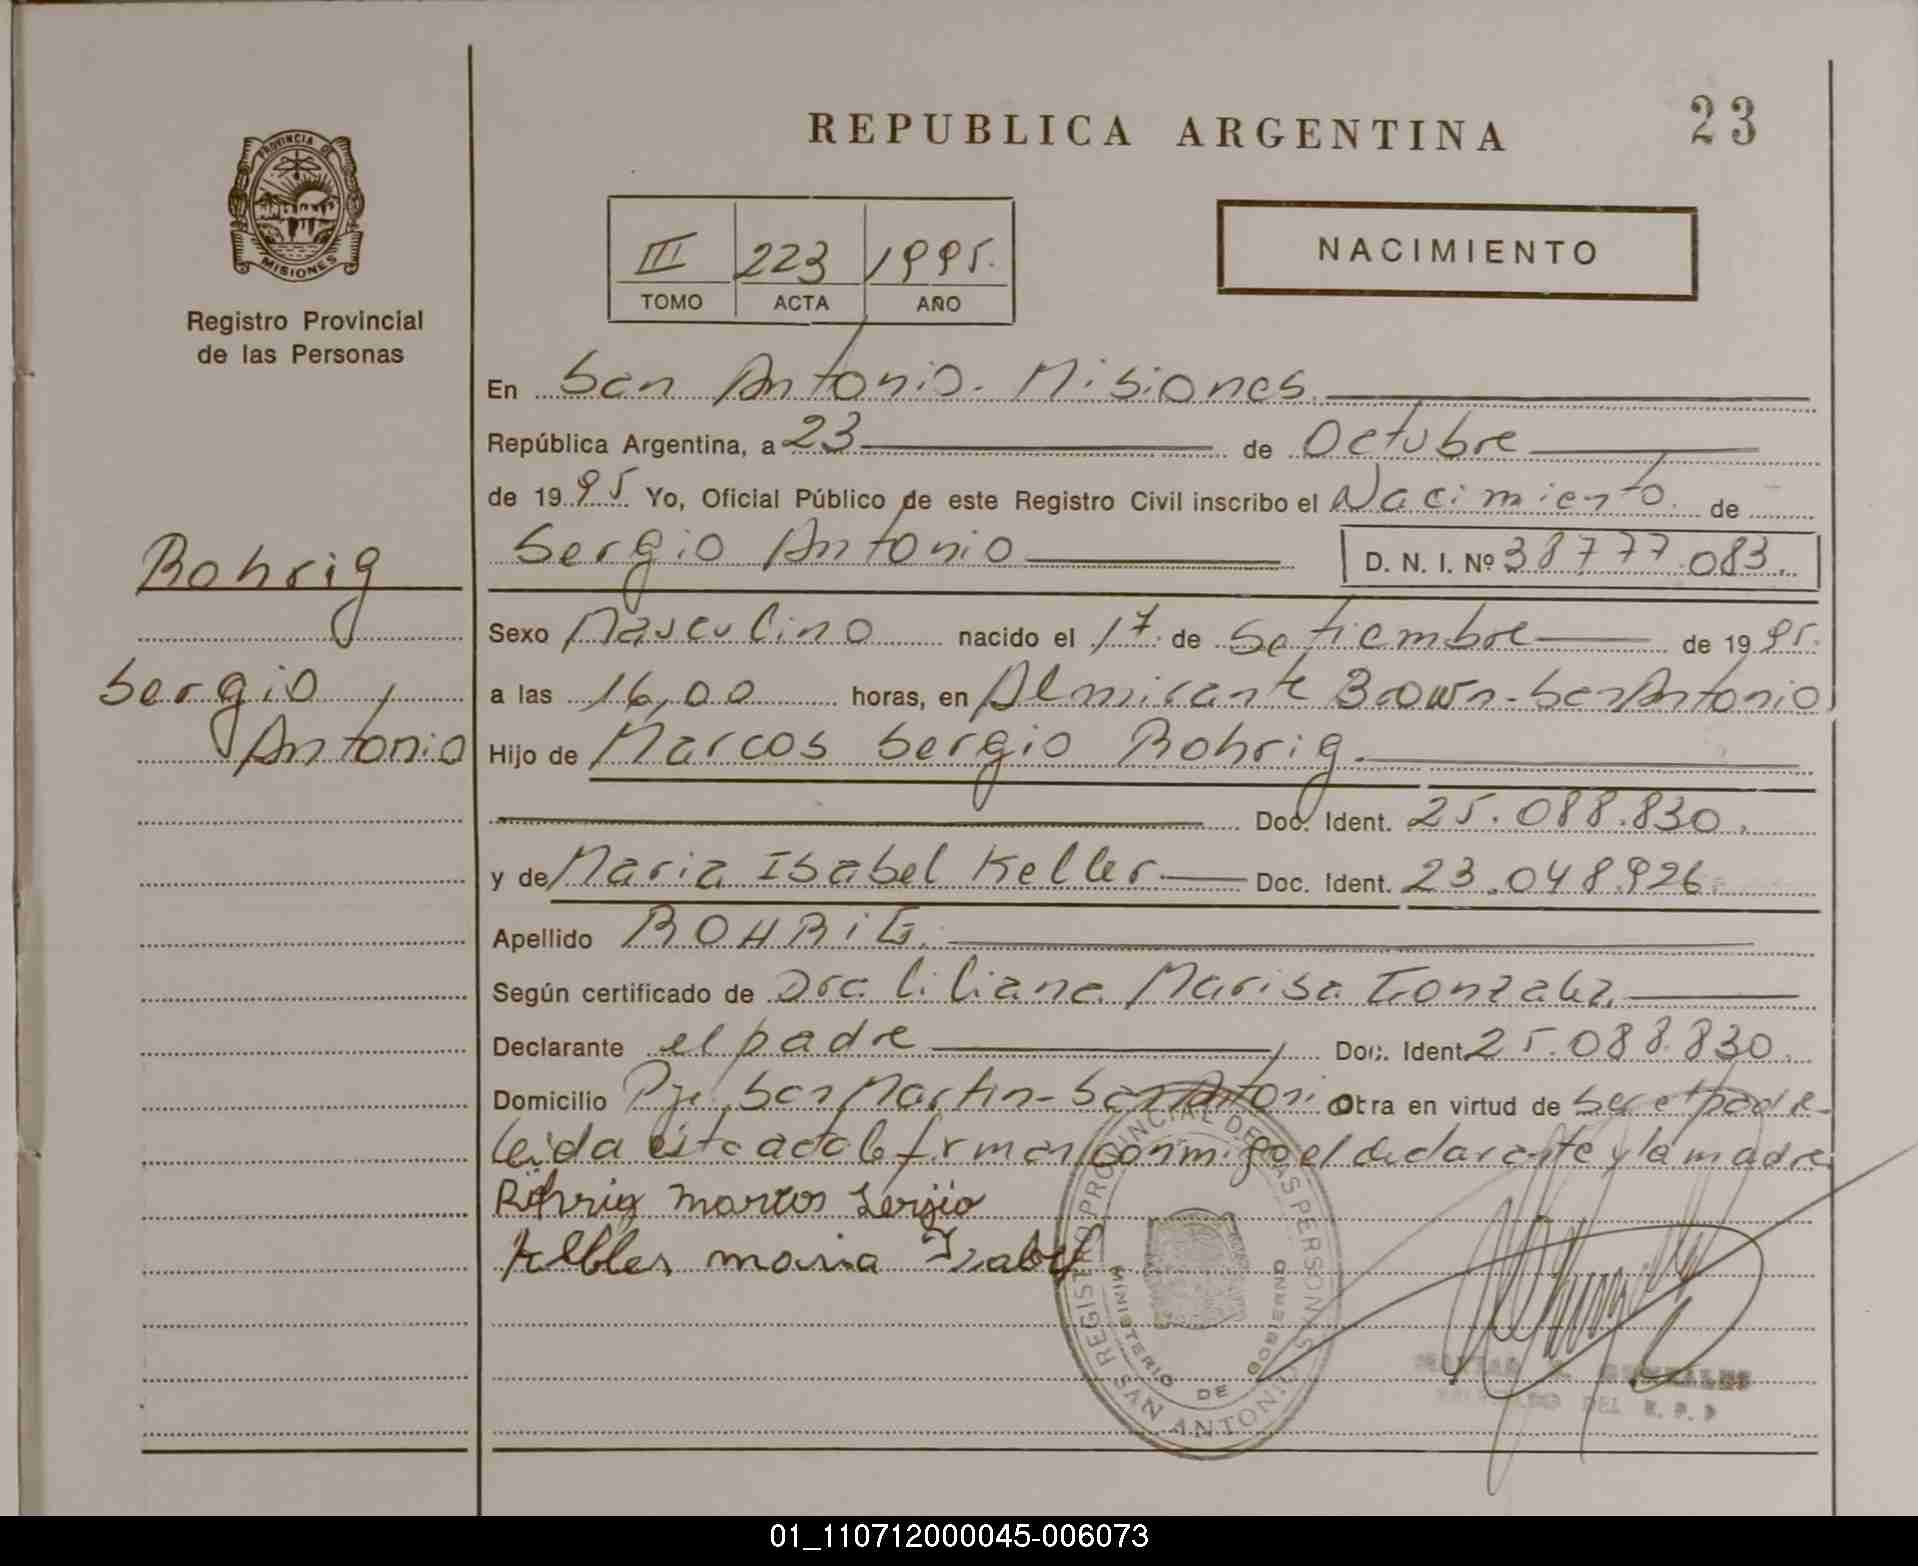 REPUBLICA ARGENTINA
23
PROVINCIA DE
MISIONES
Registro Provincial
de las Personas
III 223 1995.
TOMO ACTA AÑO
NACIMIENTO
En San Antonio. Misiones.
República Argentina, a 23 de Octubre
de 1995 Yo, Oficial Público de este Registro Civil inscribo el Nacimiento. de
Sergio Antonio D. N. I. Nº 38777.083.
Rohrig
Sergio
Antonio
Sexo Masculino nacido el 17 de Setiembre de 1995.
a las 16,00 horas, en Almirante Brown-San Antonio
Hijo de Marcos Sergio Rohrig.
Doc. Ident. 25.088.830.
y de Maria Isabel Keller Doc. Ident. 23.048.926.
Apellido ROHRIG.
Según certificado de Dra Liliana Marisa Gonzalez
Declarante el padre Doc. Ident. 25.088.830.
Domicilio Pje. San Martin-San Antoni Obra en virtud de ser el padre-
Leida esta acta la firman conmigo el declarante y la madre
Röhrig Marcos Sergio
Maria Isabel
REGISTRO PROVINCIAL DE LAS PERSONAS
MINISTERIO DE GOBIERNO
SAN ANTONIO
DEL R. P. P
01_110712000045-006073